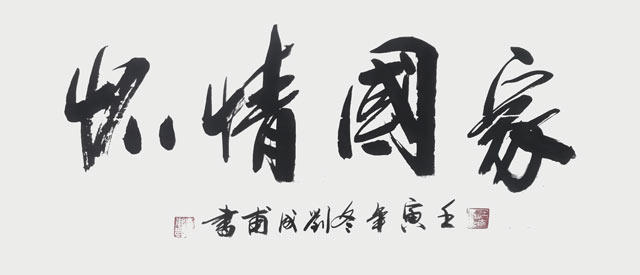 家國情怀
壬寅年冬劉成甫書